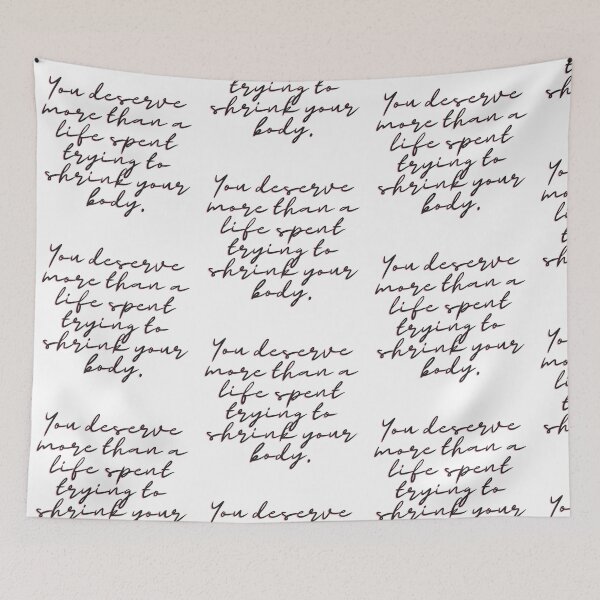 You deserve
more than a
life spent
trying to
shrink your
body.
You deserve
more than a
life spent
trying to
shrink your
body.
You deserve
more than a
life spent
trying to
shrink your
trying to
shrink your
body.
You deserve
more than a
life spent
trying to
shrink your
body.
You deserve
more than a
life spent
trying to
shrink your
body.
You deserve
You deserve
more than a
life spent
trying to
shrink your
body.
You deserve
more than a
life spent
trying to
shrink your
body.
You deserve
more than a
life spent
trying to
shrink your